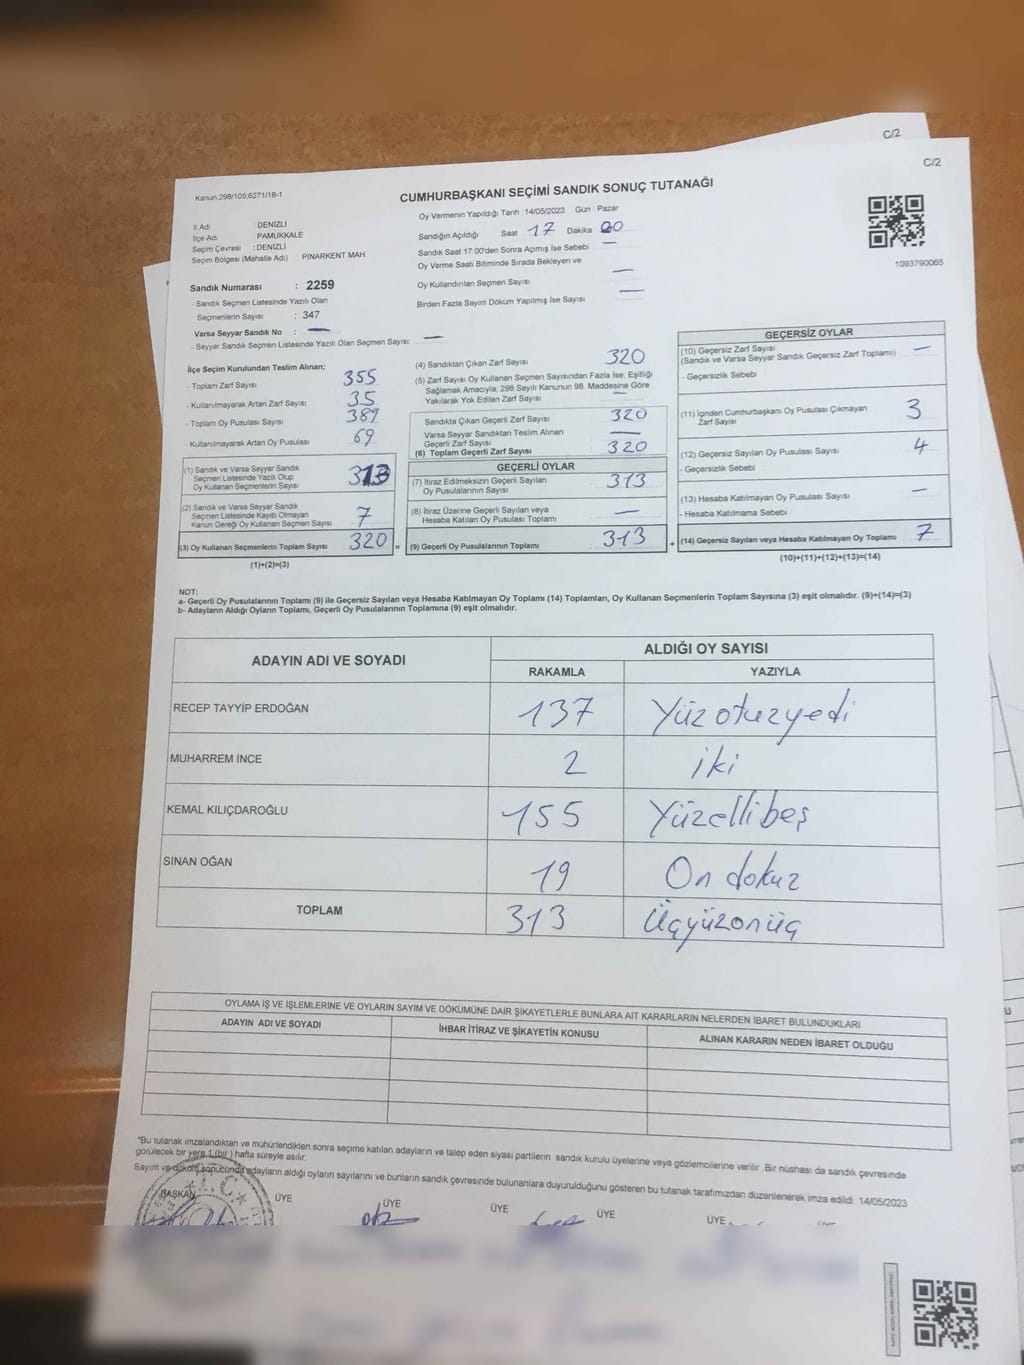 C/2
C/2
Kanun:298/105;6271/18-1
CUMHURBAŞKANI SEÇİMİ SANDIK SONUÇ TUTANAĞI
İl Adı DENİZLİ
İlçe Adı PAMUKKALE
Seçim Çevresi : DENİZLİ
Seçim Bölgesi (Mahalle Adı) PINARKENT MAH.
Oy Vermenin Yapıldığı Tarih : 14/05/2023 Gün Pazar
Sandığın Açıldığı Saat 17 Dakika
Sandık Saat 17:00'den Sonra Açımış İse Sebebi —
Oy Verme Saati Bitiminde Sırada Bekleyen ve
Oy Kullandırılan Seçmen Sayısı —
Birden Fazla Sayım Döküm Yapılmış İse Sayısı —
1093790065
Sandık Numarası : 2259
- Sandık Seçmen Listesinde Yazılı Olan
Seçmenlerin Sayısı : 347
Varsa Seyyar Sandık No : —
- Seyyar Sandık Seçmen Listesinde Yazılı Olan Seçmen Sayısı —
İlçe Seçim Kurulundan Teslim Alınan;
- Toplam Zarf Sayısı 355
- Kullanılmayarak Artan Zarf Sayısı 35
- Toplam Oy Pusulası Sayısı 389
- Kullanılmayarak Artan Oy Pusulası 69
(1) Sandık ve Varsa Seyyar Sandık
Seçmen Listesinde Yazılı Olup
Oy Kullanan Seçmenlerin Sayısı 313
(2) Sandık ve Varsa Seyyar Sandık
Seçmen Listesinde Kayıtlı Olmayan
Kanun Gereği Oy Kullanan Seçmen Sayısı 7
(3) Oy Kullanan Seçmenlerin Toplam Sayısı 320 =
(1)+(2)=(3)
(4) Sandıktan Çıkan Zarf Sayısı 320
(5) Zarf Sayısı Oy Kullanan Seçmen Sayısından Fazla İse, Eşitliği
Sağlamak Amacıyla, 298 Sayılı Kanunun 98. Maddesine Göre
Yakılarak Yok Edilen Zarf Sayısı —
Sandıkta Çıkan Geçerli Zarf Sayısı 320
Varsa Seyyar Sandıktan Teslim Alınan
Geçerli Zarf Sayısı —
(6) Toplam Geçerli Zarf Sayısı 320
GEÇERLİ OYLAR
(7) İtiraz Edilmeksizin Geçerli Sayılan
Oy Pusulalarının Sayısı 313
(8) İtiraz Üzerine Geçerli Sayılan veya
Hesaba Katılan Oy Pusulası Toplamı —
(9) Geçerli Oy Pusulalarının Toplamı 313 +
GEÇERSİZ OYLAR
(10) Geçersiz Zarf Sayısı —
(Sandık ve Varsa Seyyar Sandık Geçersiz Zarf Toplamı)
- Geçersizlik Sebebi
(11) İçinden Cumhurbaşkanı Oy Pusulası Çıkmayan
Zarf Sayısı 3
(12) Geçersiz Sayılan Oy Pusulası Sayısı 4
- Geçersizlik Sebebi
(13) Hesaba Katılmayan Oy Pusulası Sayısı —
- Hesaba Katılmama Sebebi
(14) Geçersiz Sayılan veya Hesaba Katılmayan Oy Toplamı 7
(10)+(11)+(12)+(13)=(14)
NOT:
a- Geçerli Oy Pusulalarının Toplamı (9) ile Geçersiz Sayılan veya Hesaba Katılmayan Oy Toplamı (14) Toplamları, Oy Kullanan Seçmenlerin Toplam Sayısına (3) eşit olmalıdır. (9)+(14)=(3)
b- Adayların Aldığı Oyların Toplamı, Geçerli Oy Pusulalarının Toplamına (9) eşit olmalıdır.
ADAYIN ADI VE SOYADI ALDIĞI OY SAYISI
RAKAMLA YAZIYLA
RECEP TAYYİP ERDOĞAN 137 Yüzotuzyedi
MUHARREM İNCE 2 iki
KEMAL KILIÇDAROĞLU 155 Yüzellibeş
SİNAN OĞAN 19 On dokuz
TOPLAM 313 Üçyüzonüç
OYLAMA İŞ VE İŞLEMLERİNE VE OYLARIN SAYIM VE DÖKÜMÜNE DAİR ŞİKAYETLERLE BUNLARA AİT KARARLARIN NELERDEN İBARET BULUNDUKLARI
ADAYIN ADI VE SOYADI İHBAR İTİRAZ VE ŞİKAYETİN KONUSU ALINAN KARARIN NEDEN İBARET OLDUĞU
*Bu tutanak imzalandıktan ve mühürlendikten sonra seçime katılan adayların ve talep eden siyasi partilerin sandık kurulu üyelerine veya gözlemcilerine verilir. Bir nüshası da sandık çevresinde
görülecek bir yere 1 (bir) hafta süreyle asılır.
Sayım ve döküm sonucunda adayların aldığı oyların sayılarını ve bunların sandık çevresinde bulunanlara duyurulduğunu gösteren bu tutanak tarafımızdan düzenlenerek imza edildi. 14/05/2023
BAŞKAN ÜYE ÜYE ÜYE ÜYE ÜYE
T.C.